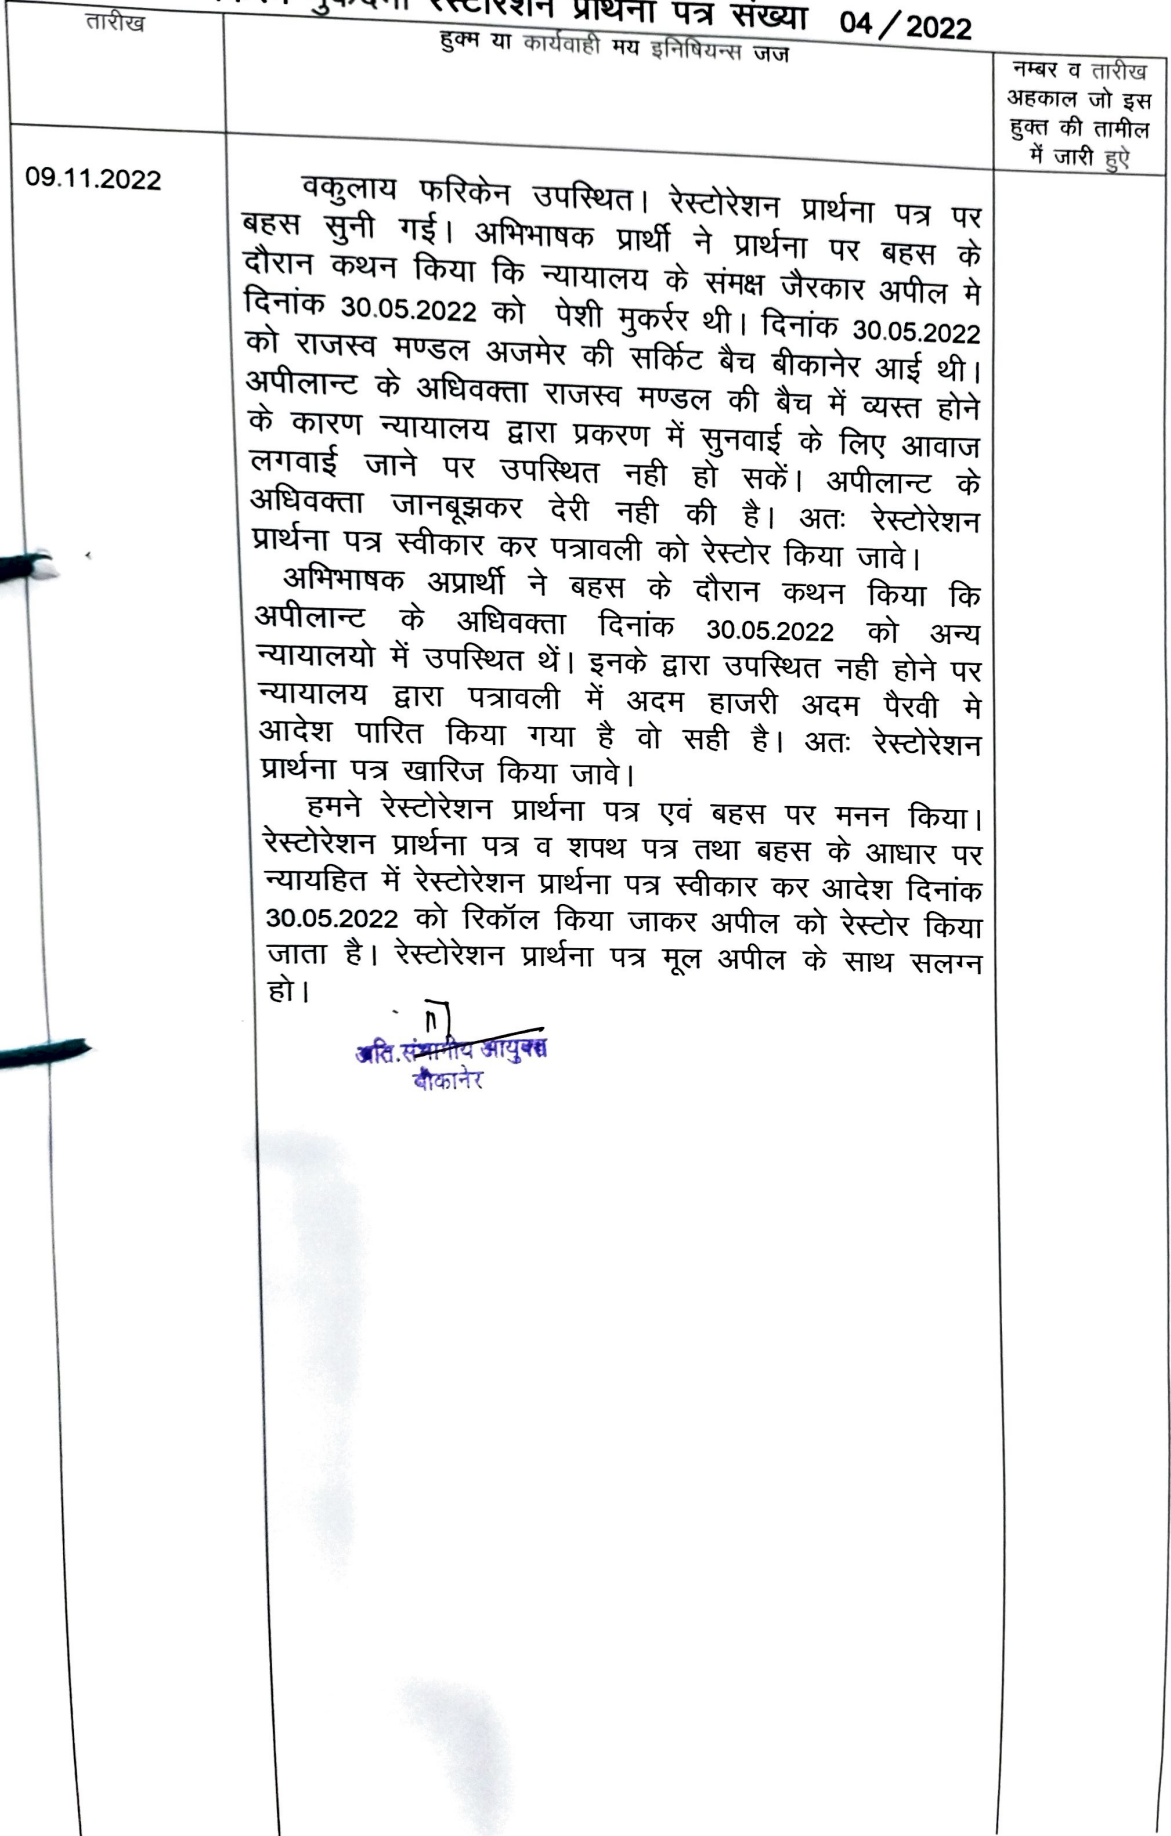 मुकदमा रेस्टोरेशन प्रार्थना पत्र संख्या 04/2022
तारीख
हुक्म या कार्यवाही मय इनिषियन्स जज
नम्बर व तारीख
अहकाल जो इस
हुक्त की तामील
में जारी हुऐ
09.11.2022
वकुलाय फरिकेन उपस्थित। रेस्टोरेशन प्रार्थना पत्र पर
बहस सुनी गई। अभिभाषक प्रार्थी ने प्रार्थना पर बहस के
दौरान कथन किया कि न्यायालय के संमक्ष जैरकार अपील मे
दिनांक 30.05.2022 को पेशी मुकर्रर थी। दिनांक 30.05.2022
को राजस्व मण्डल अजमेर की सर्किट बैच बीकानेर आई थी।
अपीलान्ट के अधिवक्ता राजस्व मण्डल की बैच में व्यस्त होने
के कारण न्यायालय द्वारा प्रकरण में सुनवाई के लिए आवाज
लगवाई जाने पर उपस्थित नही हो सकें। अपीलान्ट के
अधिवक्ता जानबूझकर देरी नही की है। अतः रेस्टोरेशन
प्रार्थना पत्र स्वीकार कर पत्रावली को रेस्टोर किया जावे।
अभिभाषक अप्रार्थी ने बहस के दौरान कथन किया कि
अपीलान्ट के अधिवक्ता दिनांक 30.05.2022 को अन्य
न्यायालयो में उपस्थित थें। इनके द्वारा उपस्थित नही होने पर
न्यायालय द्वारा पत्रावली में अदम हाजरी अदम पैरवी मे
आदेश पारित किया गया है वो सही है। अतः रेस्टोरेशन
प्रार्थना पत्र खारिज किया जावे।
हमने रेस्टोरेशन प्रार्थना पत्र एवं बहस पर मनन किया।
रेस्टोरेशन प्रार्थना पत्र व शपथ पत्र तथा बहस के आधार पर
न्यायहित में रेस्टोरेशन प्रार्थना पत्र स्वीकार कर आदेश दिनांक
30.05.2022 को रिकॉल किया जाकर अपील को रेस्टोर किया
जाता है। रेस्टोरेशन प्रार्थना पत्र मूल अपील के साथ सलग्न
हो।
अति.संभागीय आयुक्त
बीकानेर